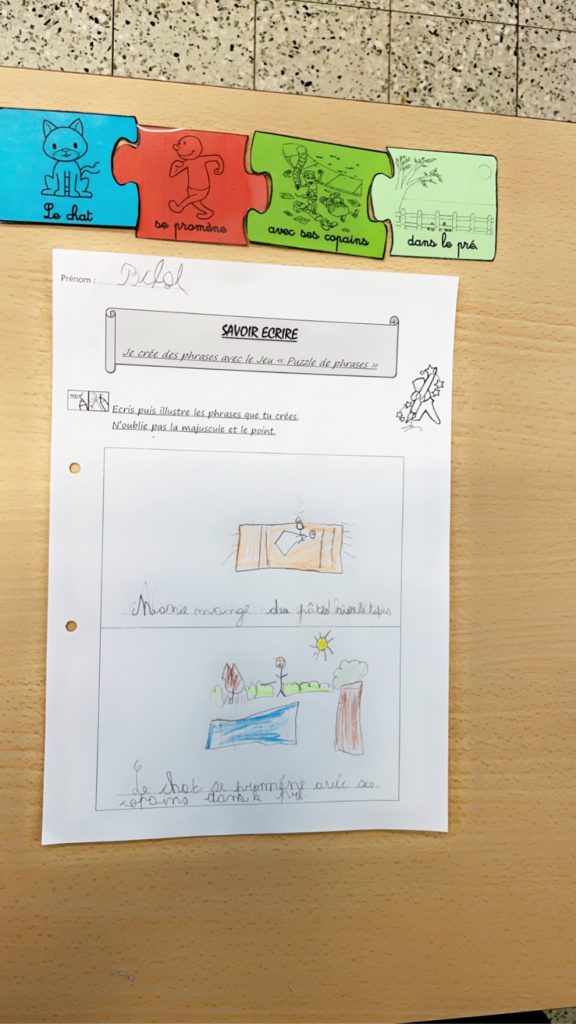 Le chat
se promène
avec ses copains
dans le pré.
Prénom :
SAVOIR ECRIRE
Je crée des phrases avec le Jeu « Puzzle de phrases »
Ecris puis illustre les phrases que tu crées.
N'oublie pas la majuscule et le point.
mange des pâtes sur le tapis
Le chat se promène avec ses
copains dans le pré.